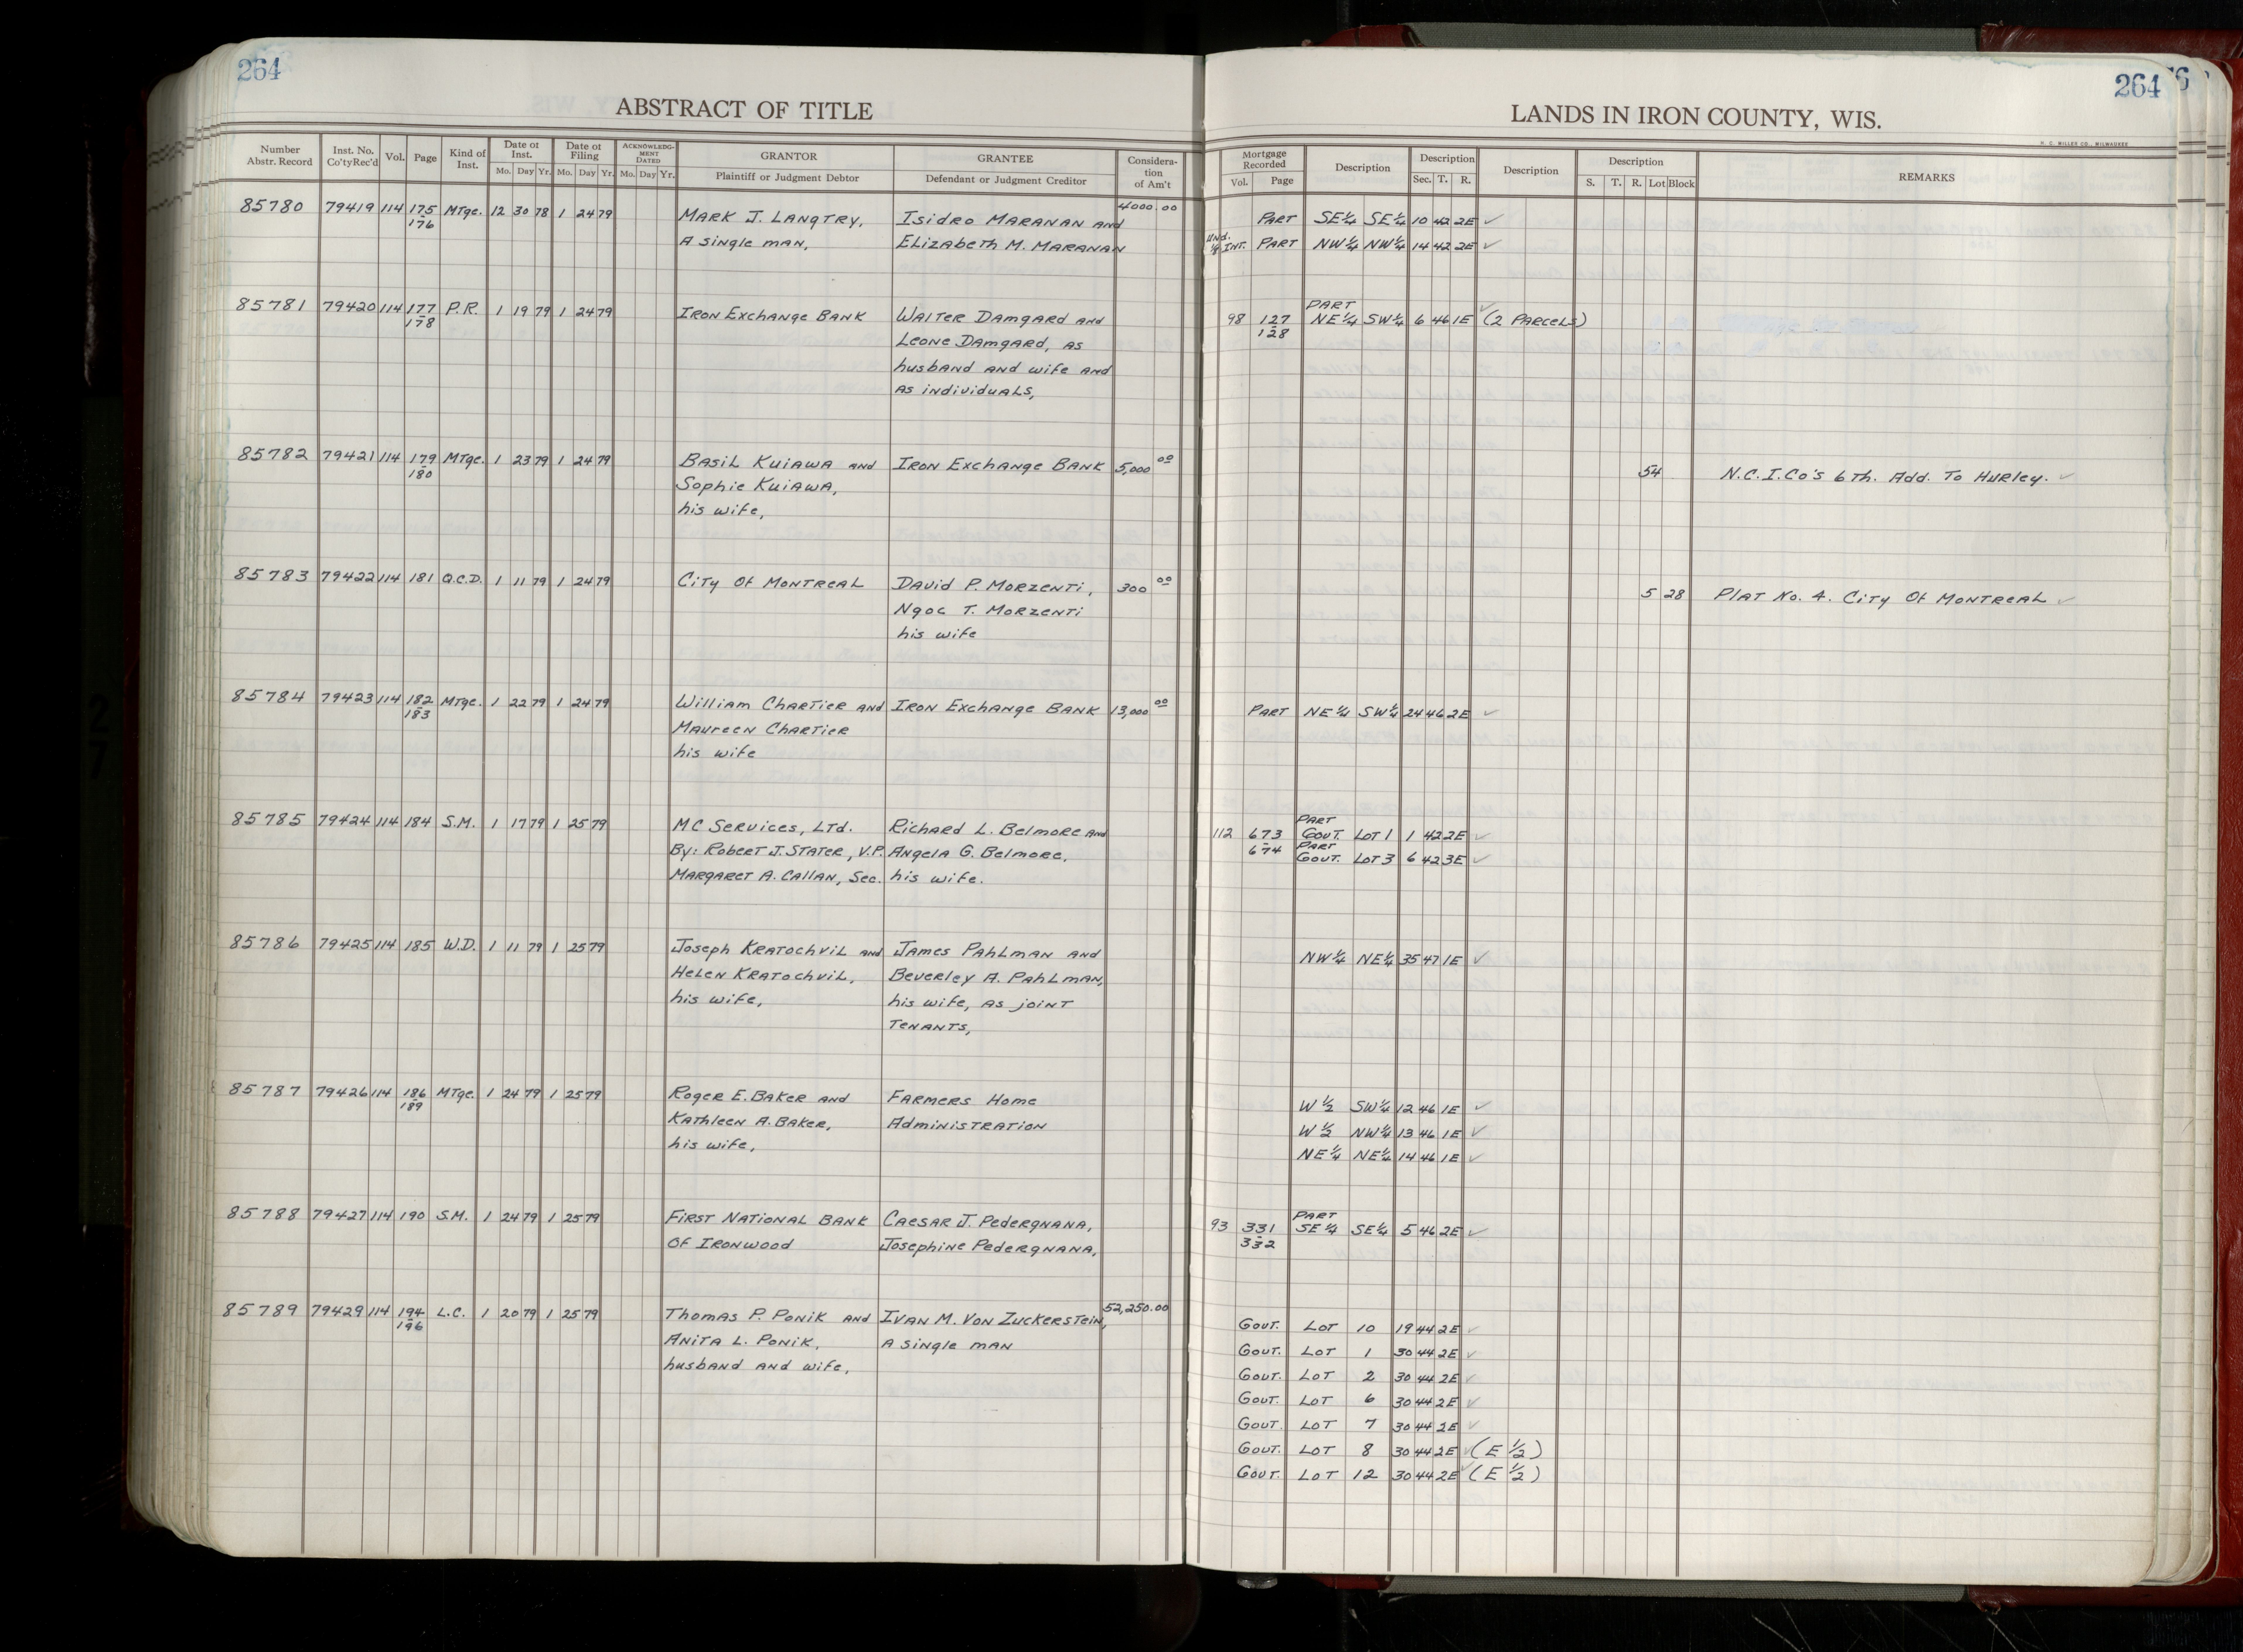 264
ABSTRACT OF TITLE
Number Abstr. Record | Inst. No. Co'ty Rec'd | Vol. | Page | Kind of Inst. | Date of Inst. Mo. Day Yr. | Date of Filing Mo. Day Yr. | ACKNOWLEDGMENT DATED Mo. Day Yr. | GRANTOR Plaintiff or Judgment Debtor | GRANTEE Defendant or Judgment Creditor | Consideration of Am't
85780 79419 114 175-176 MTge. 12 30 78 1 24 79 MARK J. LANGTRY, Isidro MARANAN and 4000.00
A single man, Elizabeth M. MARANAN
85781 79420 114 177-178 P.R. 1 19 79 1 24 79 IRON Exchange BANK WALTER Damgard and
Leone Damgard, as
husband and wife and
as individuals,
85782 79421 114 179-180 MTge. 1 23 79 1 24 79 Basil Kuiawa and IRON Exchange BANK 5,000 00
Sophie Kuiawa,
his wife,
85783 79422 114 181 Q.C.D. 1 11 79 1 24 79 City Of Montreal David P. Morzenti, 300 00
Ngoc T. Morzenti
his wife
85784 79423 114 182-183 MTge. 1 22 79 1 24 79 William Chartier and IRON Exchange BANK 13,000 00
Maureen Chartier
his wife
85785 79424 114 184 S.M. 1 17 79 1 25 79 MC Services, LTd. Richard L. Belmore and
By: Robert J. Stater, V.P. Angela G. Belmore,
Margaret A. Callan, Sec. his wife.
85786 79425 114 185 W.D. 1 11 79 1 25 79 Joseph Kratochvil and James Pahlman and
Helen Kratochvil, Beverley A. Pahlman,
his wife, his wife, as joint
tenants,
85787 79426 114 186-189 MTge. 1 24 79 1 25 79 Roger E. Baker and Farmers Home
Kathleen A. Baker, Administration
his wife,
85788 79427 114 190 S.M. 1 24 79 1 25 79 First National Bank Caesar J. Pedergnana,
Of Ironwood Josephine Pedergnana,
85789 79429 114 194-196 L.C. 1 20 79 1 25 79 Thomas P. Ponik and Ivan M. Von Zuckerstein, 52,250.00
Anita L. Ponik, A single man
husband and wife,
264
LANDS IN IRON COUNTY, WIS.
H. C. MILLER CO., MILWAUKEE
Mortgage Recorded Vol. Page | Description | Description Sec. T. R. | Description | Description S. T. R. Lot Block | REMARKS
Part SE¼ SE¼ 10 42 2E ✓
Und. ⅛ Int. Part NW¼ NW¼ 14 42 2E ✓
Part
98 127-128 NE¼ SW¼ 6 46 1E ✓ (2 Parcels)
54 N.C.I.Co's 6th. Add. To Hurley. ✓
5 28 Plat No. 4. City Of Montreal ✓
Part NE¼ SW¼ 24 46 2E ✓
Part
112 673-674 Gout. Lot 1 1 42 2E ✓
Part
Gout. Lot 3 6 42 3E ✓
NW¼ NE¼ 35 47 1E ✓
W½ SW¼ 12 46 1E ✓
W½ NW¼ 13 46 1E ✓
NE¼ NE¼ 14 46 1E ✓
Part
93 331-332 SE¼ SE¼ 5 46 2E ✓
Gout. Lot 10 19 44 2E ✓
Gout. Lot 1 30 44 2E ✓
Gout. Lot 2 30 44 2E ✓
Gout. Lot 6 30 44 2E ✓
Gout. Lot 7 30 44 2E ✓
Gout. Lot 8 30 44 2E ✓ (E ½)
Gout. Lot 12 30 44 2E ✓ (E ½)